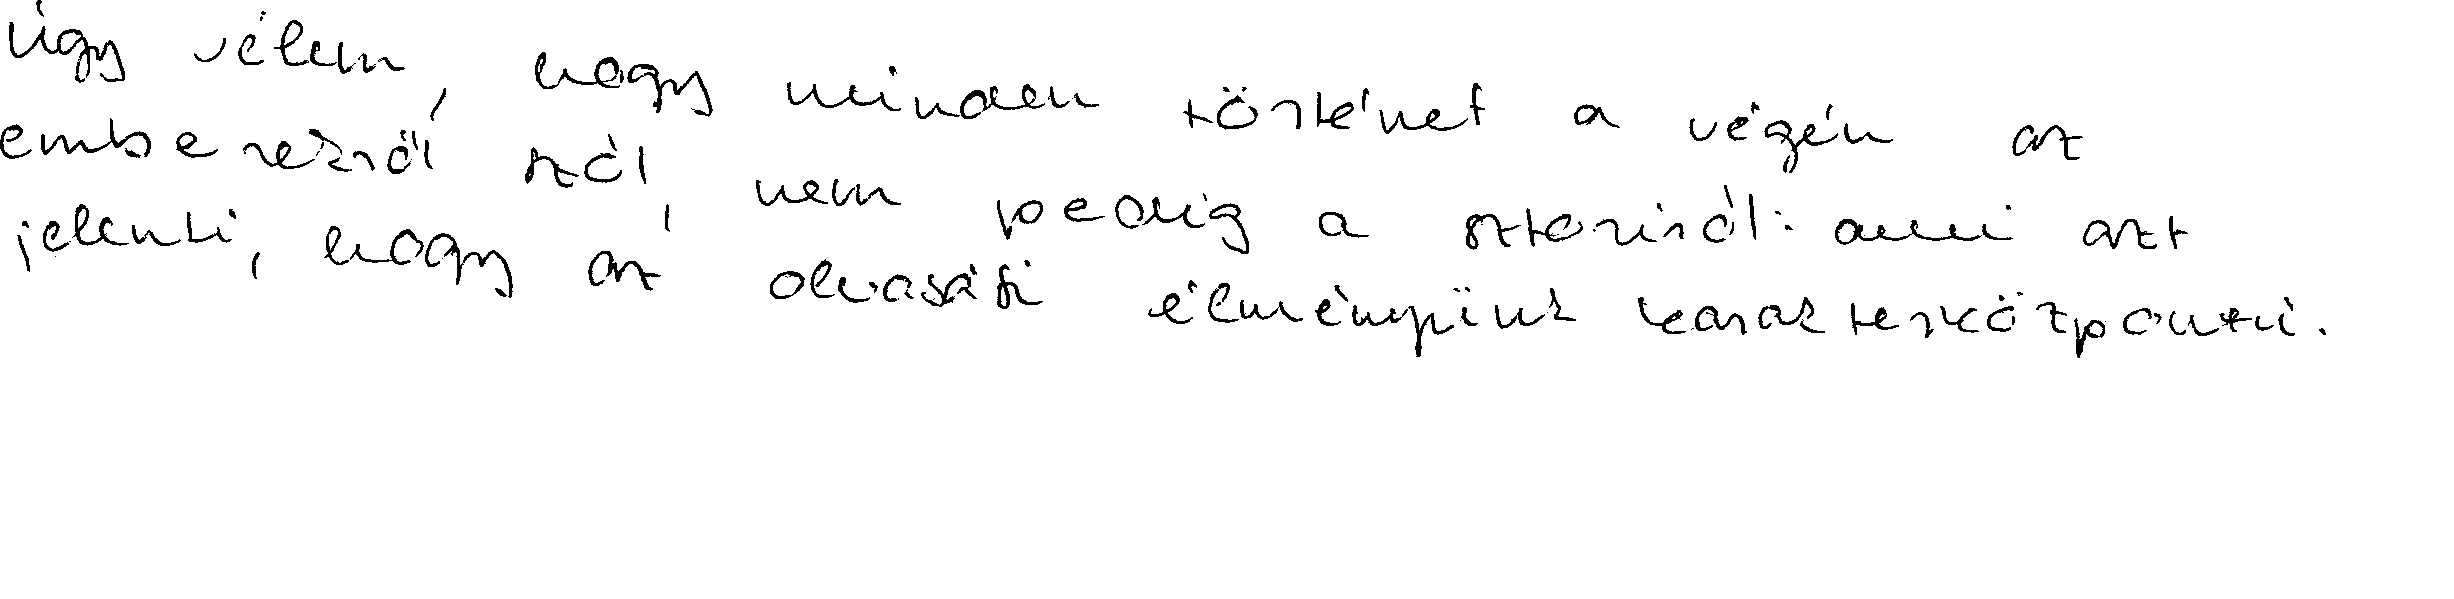 úgy vélem, hogy minden történet a végén az
emberekről szól, nem pedig a sztoriról: ami azt
jelenti, hogy az olvasási élményünk karakterközpontú.